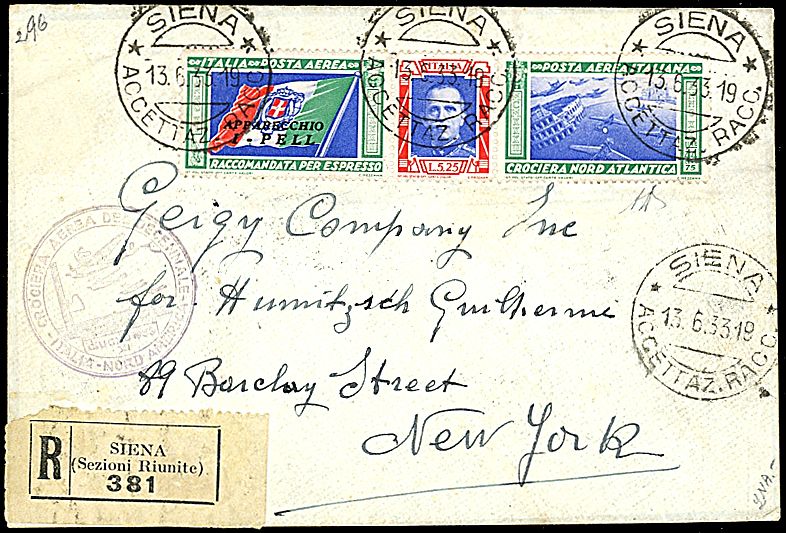 296
SIENA
13.6.33.19
ACCETTAZ. RACC.
SIENA
13.6.33.19
ACCETTAZ. RACC.
SIENA
13.6.33.19
ACCETTAZ. RACC.
ITALIA POSTA AEREA
APPARECCHIO
I-PELL
RACCOMANDATA PER ESPRESSO
ITALIA
L.5.25
POSTA AEREA ITALIANA
CROCIERA NORD ATLANTICA
Geigy Company Inc
for Humitzsch Guilherme
89 Barclay Street
New York
CROCIERA AEREA DEL DECENNALE
ITALIA-NORD AMERICA
SIENA
13.6.33.19
ACCETTAZ. RACC.
R
SIENA
(Sezioni Riunite)
381